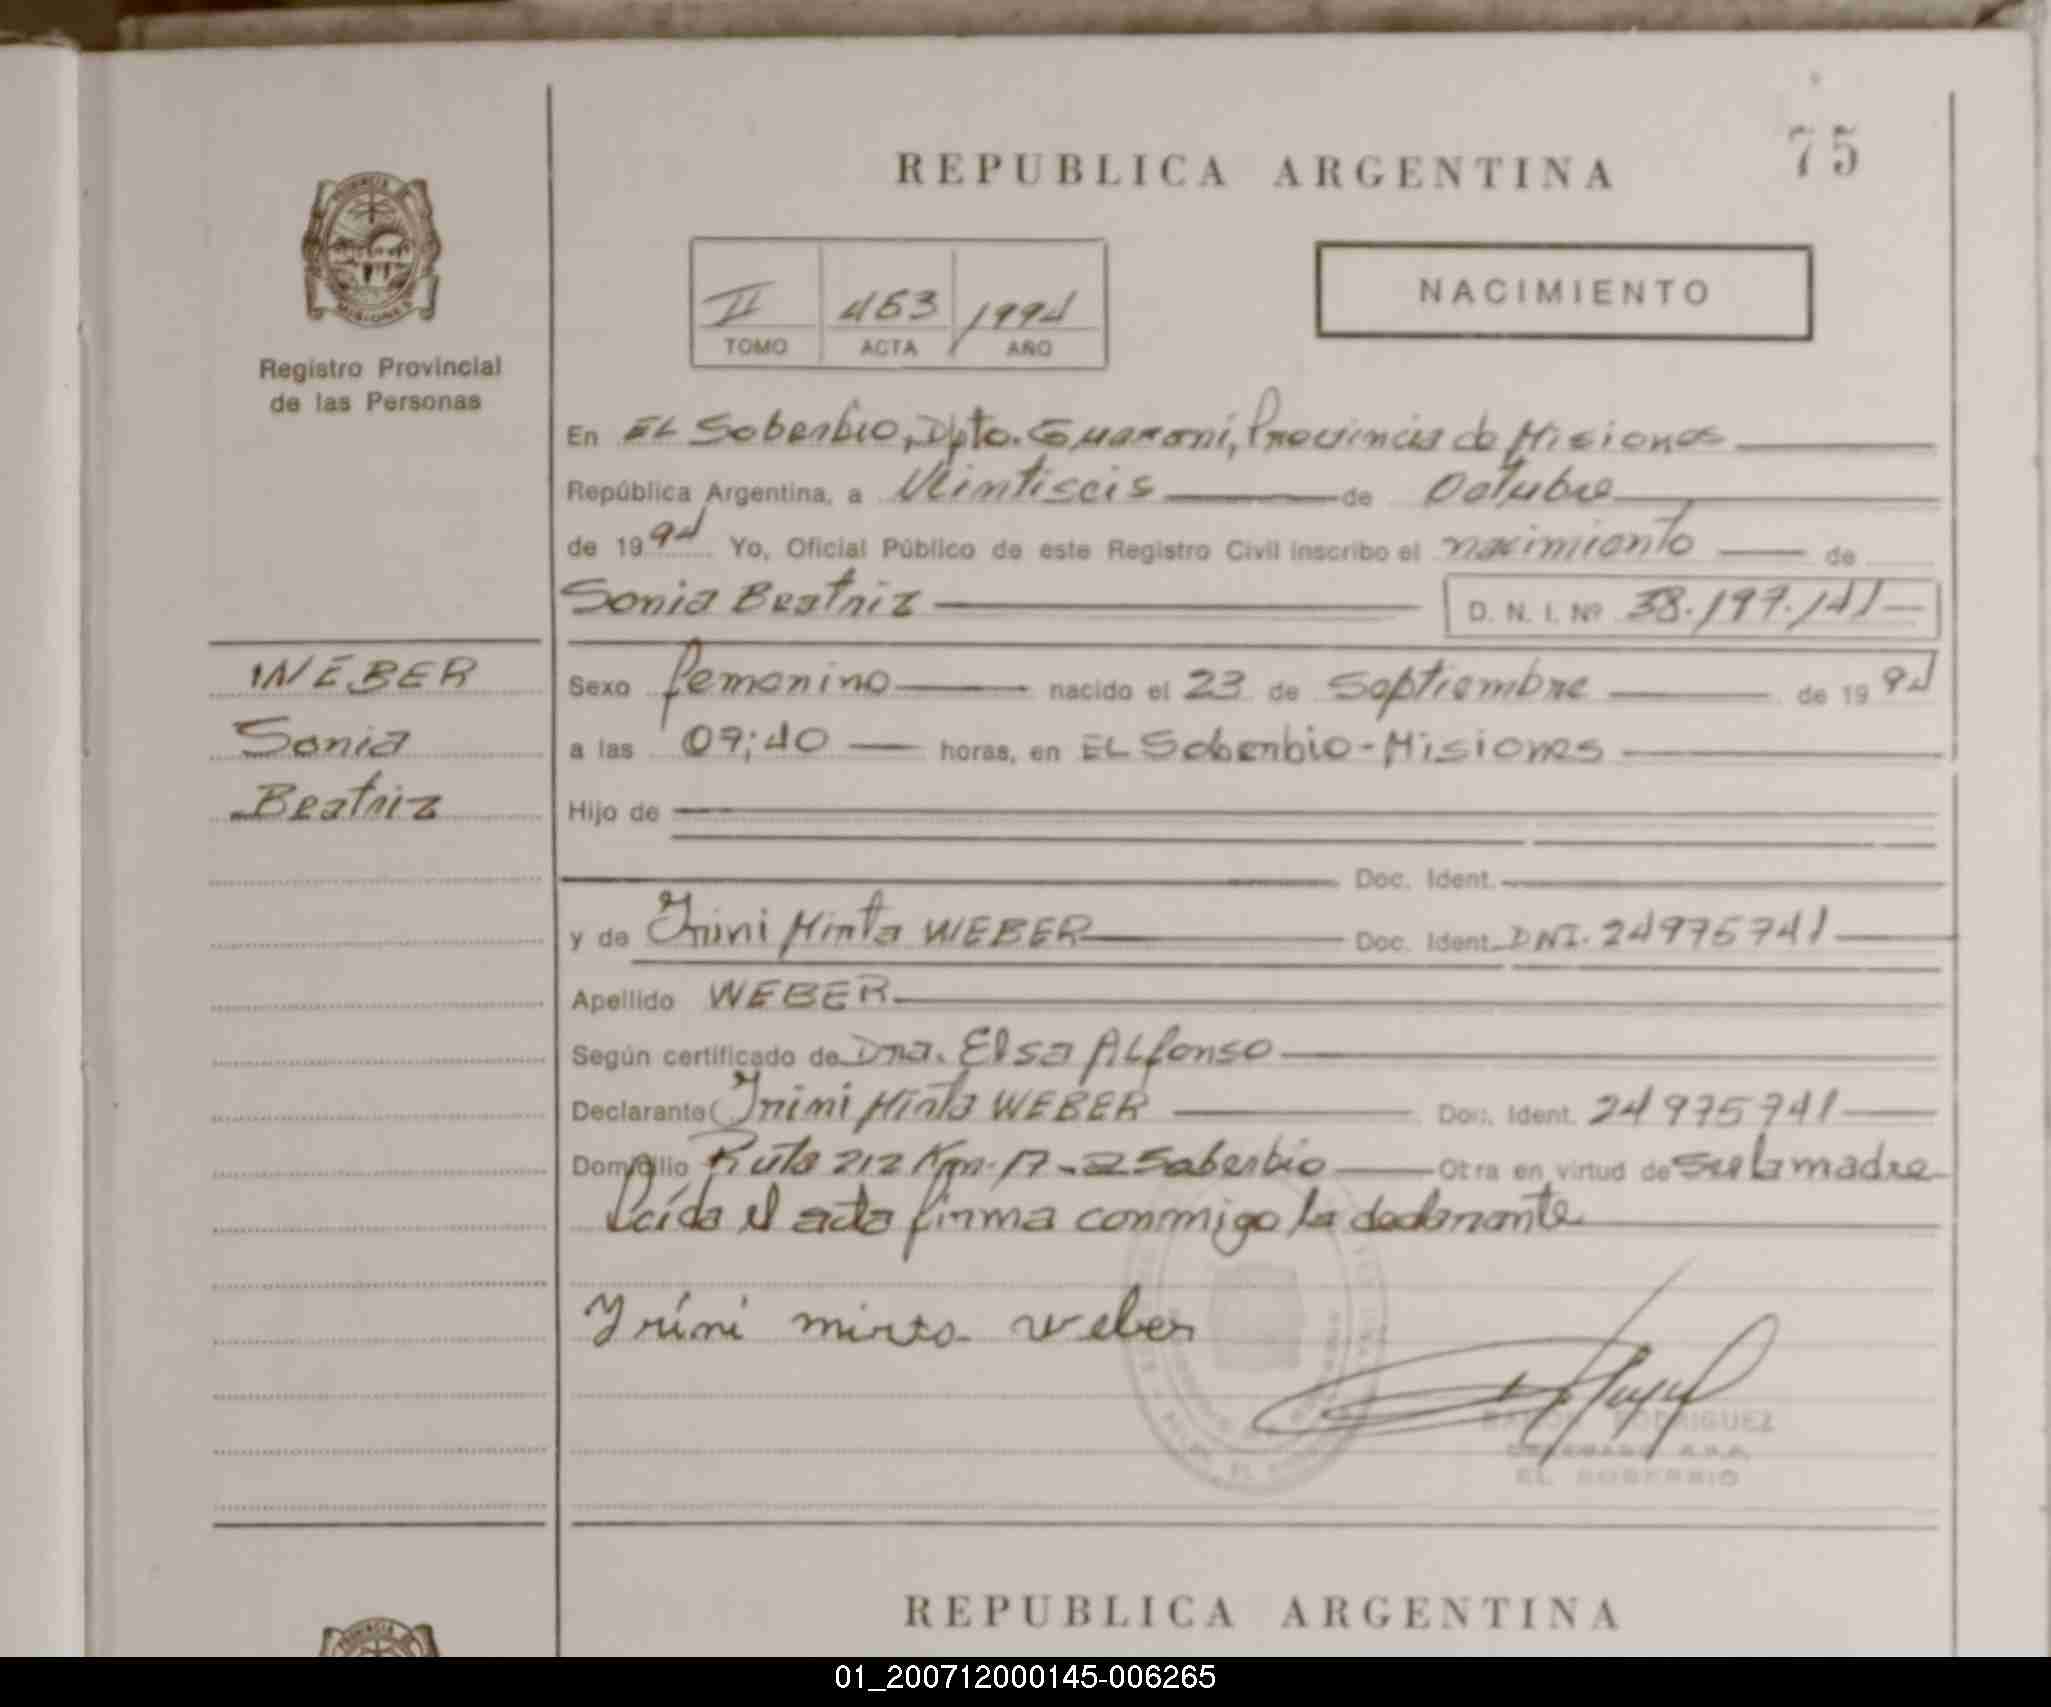 75
REPUBLICA ARGENTINA
PROVINCIA DE
MISIONES
Registro Provincial
de las Personas
II 463 1994
TOMO ACTA AÑO
NACIMIENTO
En EL Soberbio, Dpto. Guaraní, Provincia de Misiones
República Argentina, a Veintiseis de Octubre
de 1994 Yo, Oficial Público de este Registro Civil inscribo el nacimiento de
Sonia Beatriz D. N. I. Nº 38.197.141
WEBER
Sonia
Beatriz
Sexo femenino nacido el 23 de Septiembre de 1994
a las 09:40 horas, en EL Soberbio - Misiones
Hijo de
Doc. Ident.
y de Irini Mirta WEBER Doc. Ident. DNI. 24975741
Apellido WEBER
Según certificado de Dra. Elsa Alfonso
Declarante Irini Mirta WEBER Doc. Ident. 24975741
Domicilio Ruta 212 Km. 17 - El Soberbio Otra en virtud de ser la madre
Leída el acta firma conmigo la declarante
Yrini mirta weber
RAMON RODRIGUEZ
EL SOBERBIO
REPUBLICA ARGENTINA
01_200712000145-006265